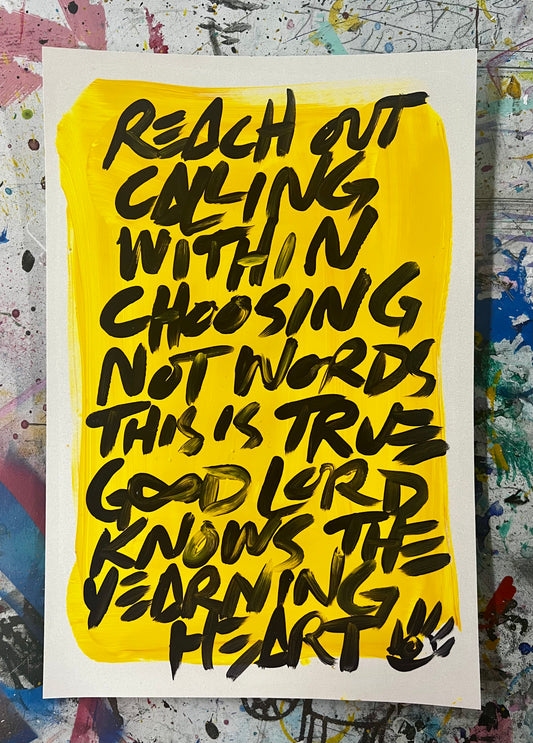 REACH OUT
CALLING
WITHIN
CHOOSING
NOT WORDS
THIS IS TRUE
GOOD LORD
KNOWS THE
YEARNING
HEART